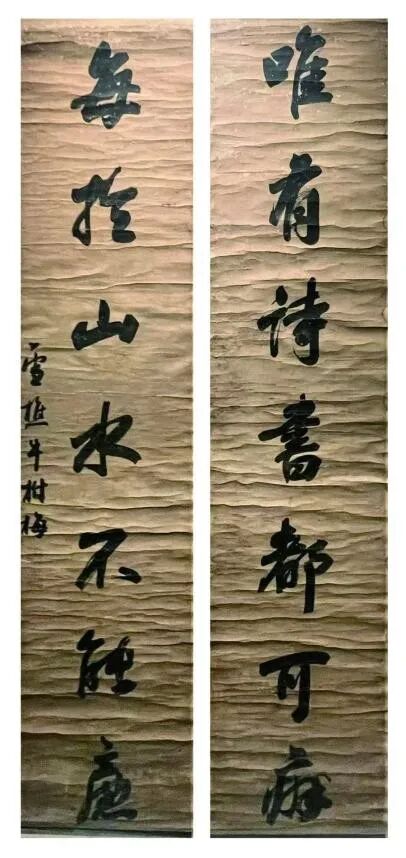 唯有詩書都可癖
每於山水不能廉
雪樵牛樹梅